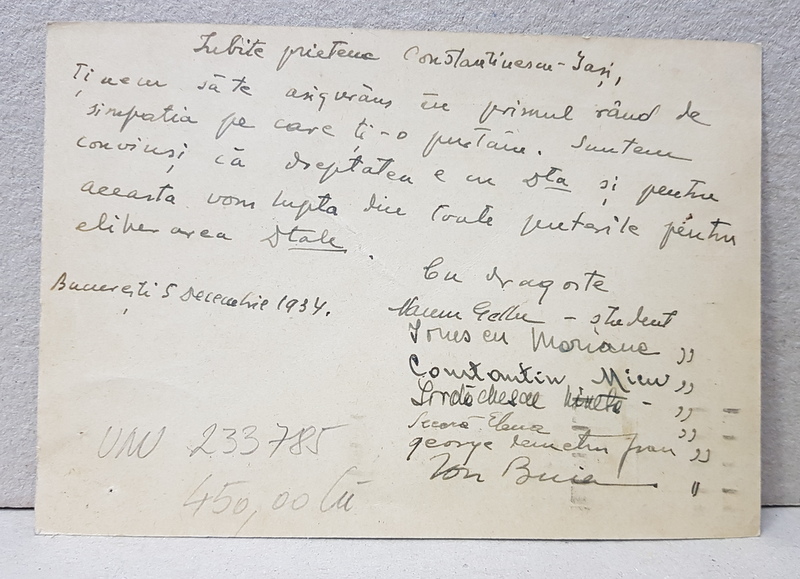 Iubite prietene Constantinescu-Iași,
Ținem să te asigurăm în primul rând de
simpatia pe care ți-o purtăm. Suntem
convinși că dreptatea e cu Dta și pentru
aceasta vom lupta din toate puterile pentru
eliberarea Dtale.
Cu dragoste
București 5 Decembrie 1934.
Naum - student
Ionescu Mariana "
Constantin Micu "
Iordăchescu - "
Elena "
George Demetru "
Ion Buia "
UNU 233785
450,00 Lei